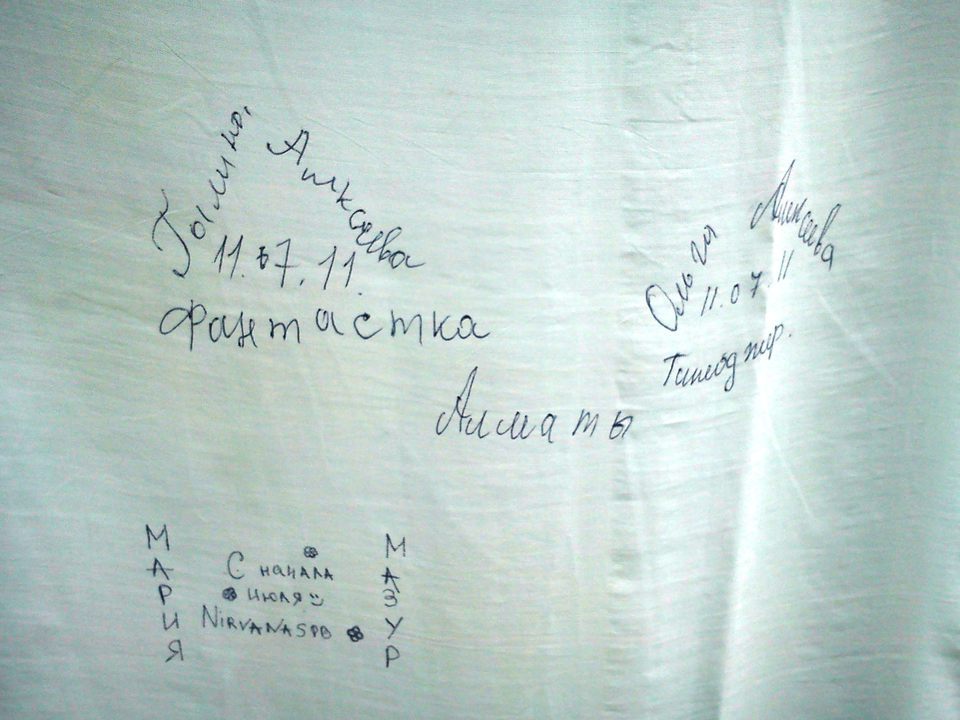 Галина Аликаева
11.07.11.
Фантастка
Ольга Аликаева
11.07.11
Алматы
МАРИЯ
С начала
июля
NIRVANASPB
МАЗУР